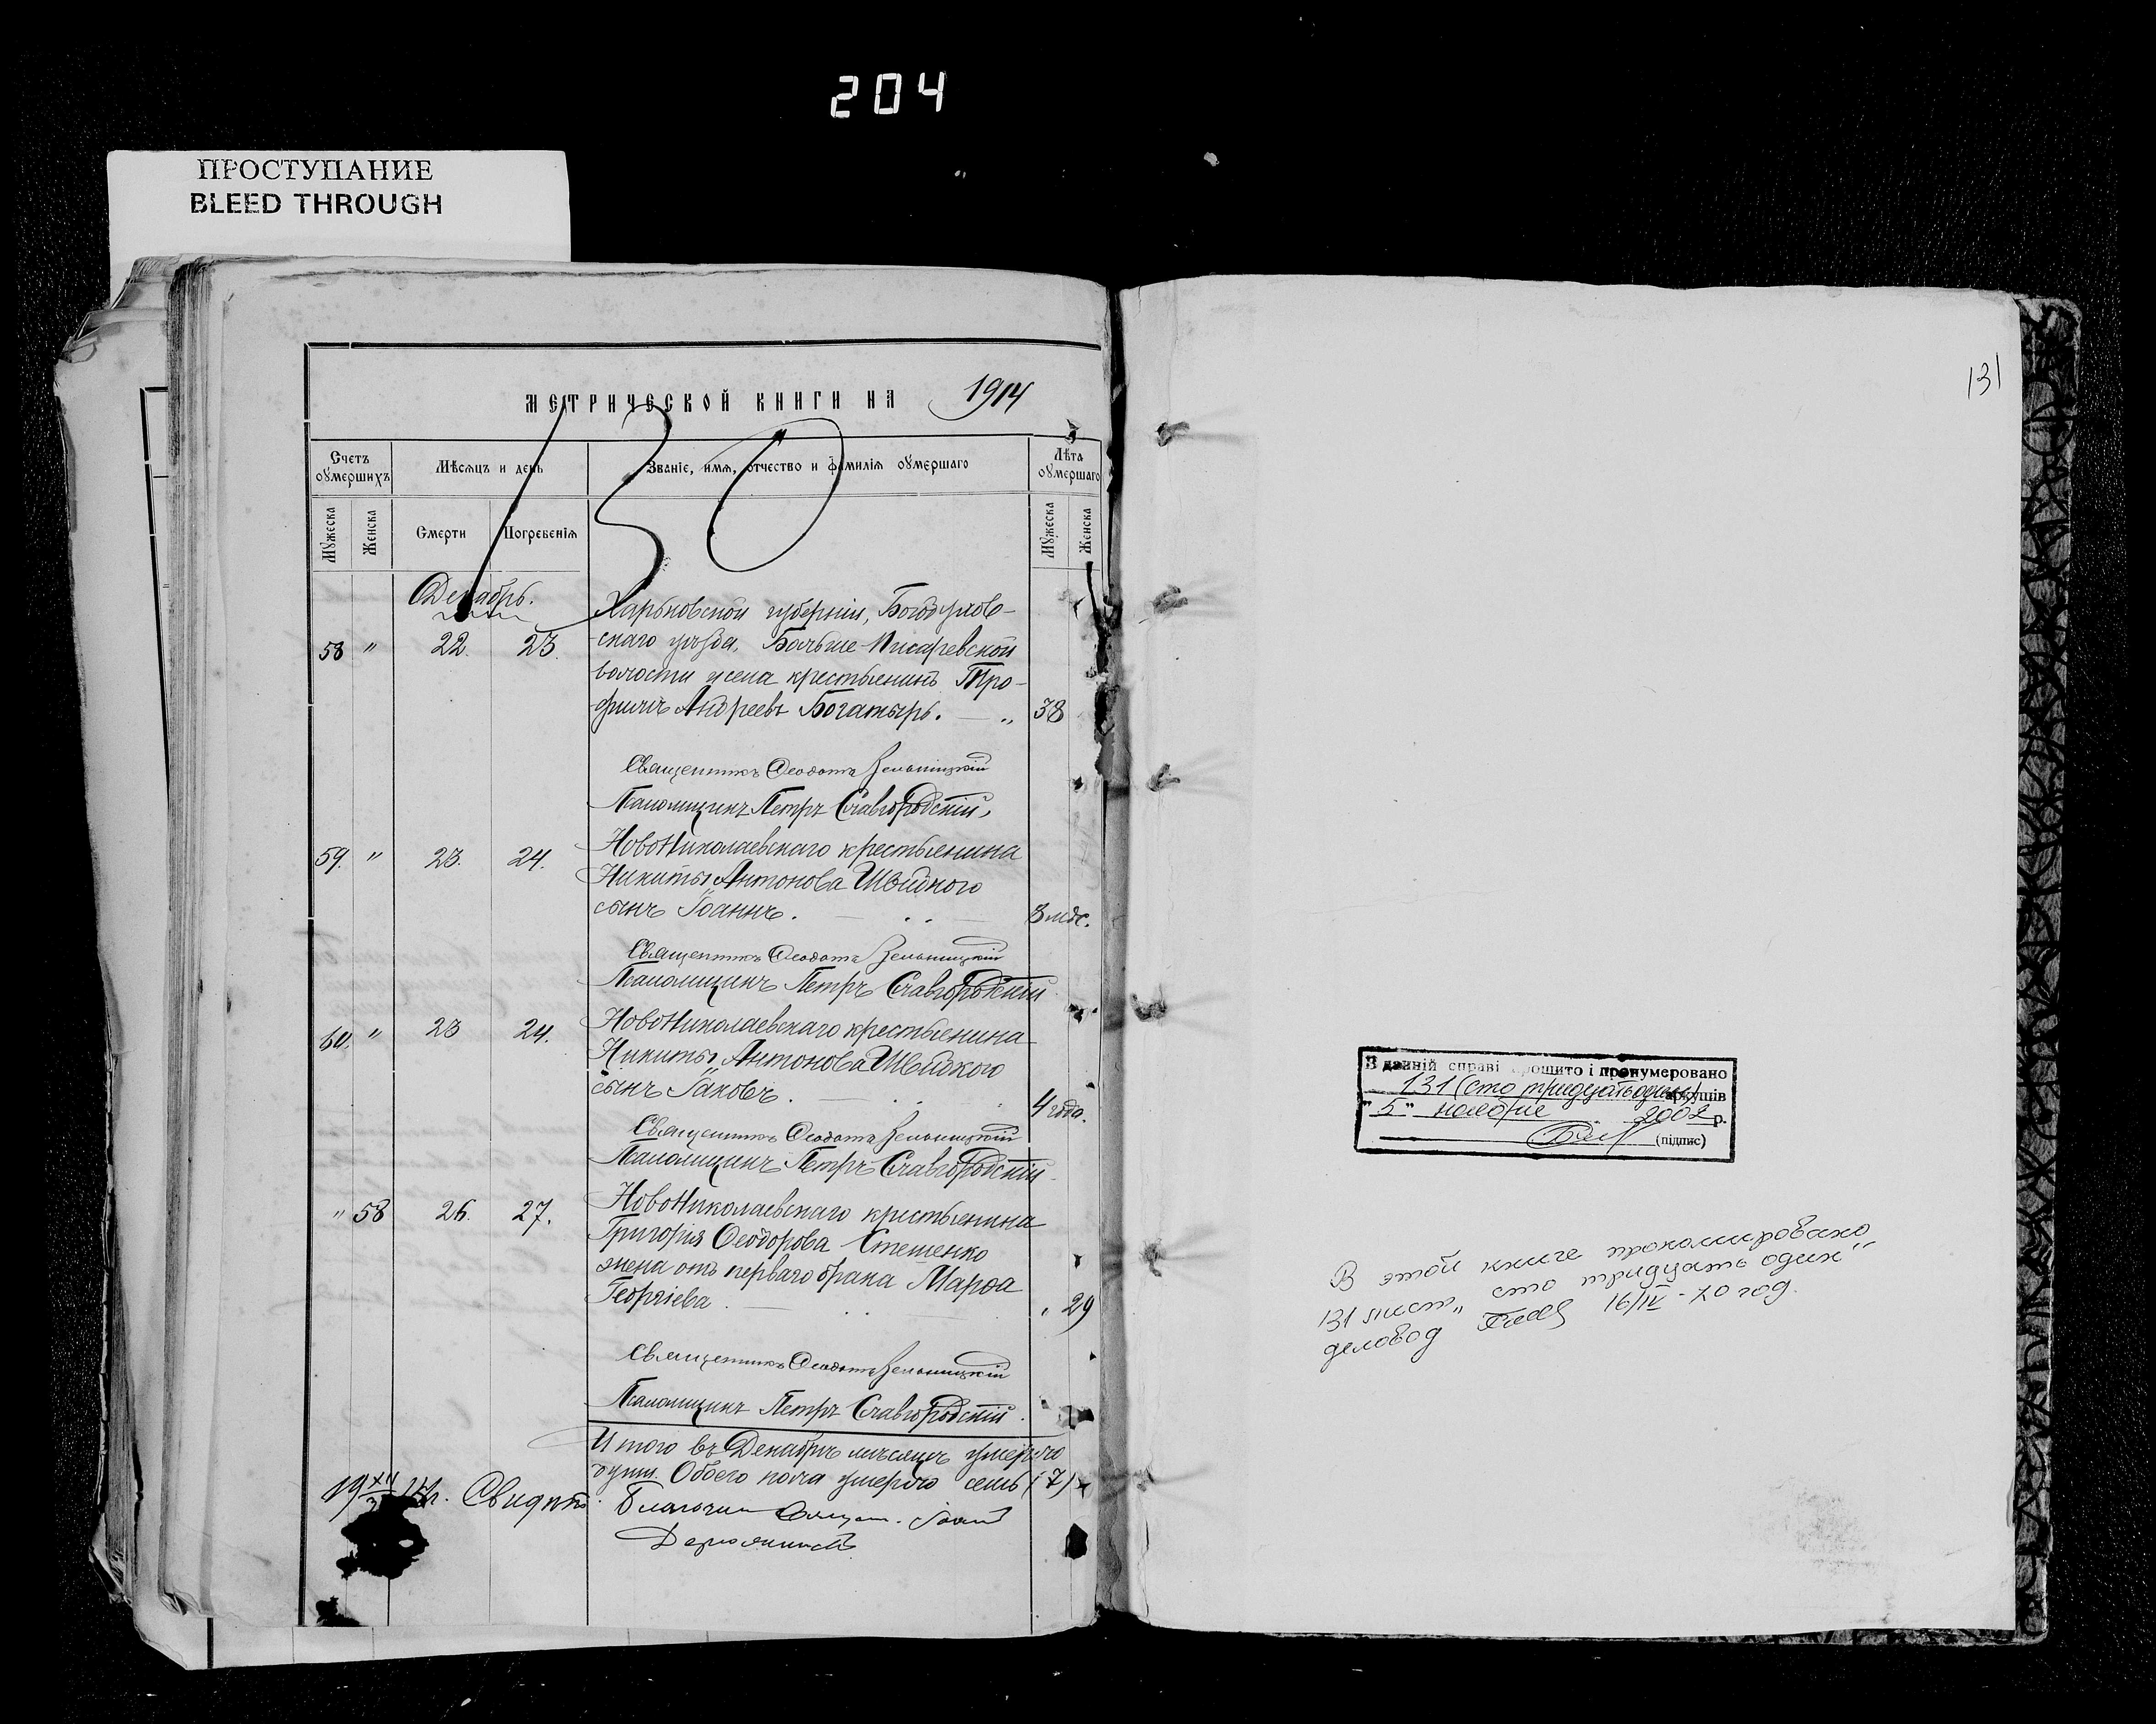 204
ПРОСТУПАНИЕ
BLEED THROUGH
МЕТРИЧЕСКОЙ КНИГИ НА 1914
130
Счетъ оумершихъ
Мѣсяцъ и день
Званіе, имя, отчество и фамилія оумершаго
Лѣта оумершаго
Мужеска
Женска
Смерти
Погребенія
Мужеска
Женска
Декабрь.
58 " 22. 23.
Харьковской губерніи, Богодухов-
скаго уѣзда, Больше-Писаревской
волости крестьянинъ Тро-
фимъ Андреевъ Богатырь. — " 38
Священникъ Ѳеодотъ
Псаломщикъ Петръ Славгородскій.
59. " 23. 24.
Новониколаевскаго крестьянина
Никиты Антонова Швидкого
сынъ Іоаннъ. 3 мѣс.
Священникъ Ѳеодотъ
Псаломщикъ Петръ Славгородскій
60. " 23 24.
Новониколаевскаго крестьянина
Никиты Антонова Швидкого
сынъ Іаковъ. 4 года.
Священникъ Ѳеодотъ
Псаломщикъ Петръ Славгородскій
" 58 26. 27.
Новониколаевскаго крестьянина
Григорія Ѳеодорова Стешенко
жена отъ перваго брака Марѳа
Георгіева " 29
Священникъ Ѳеодотъ
Псаломщикъ Петръ Славгородскій.
Итого въ Декабрѣ мѣсяцѣ умерло
Обоего пола умерло семь (7)
Свидѣт.
131
В данній справі прошито і пронумеровано
131 (сто тридцать один) аркушів
"5" 2002 р.
(підпис)
В этой книге
131 лист "сто тридцать один"
деловод 16/IV-70 год.